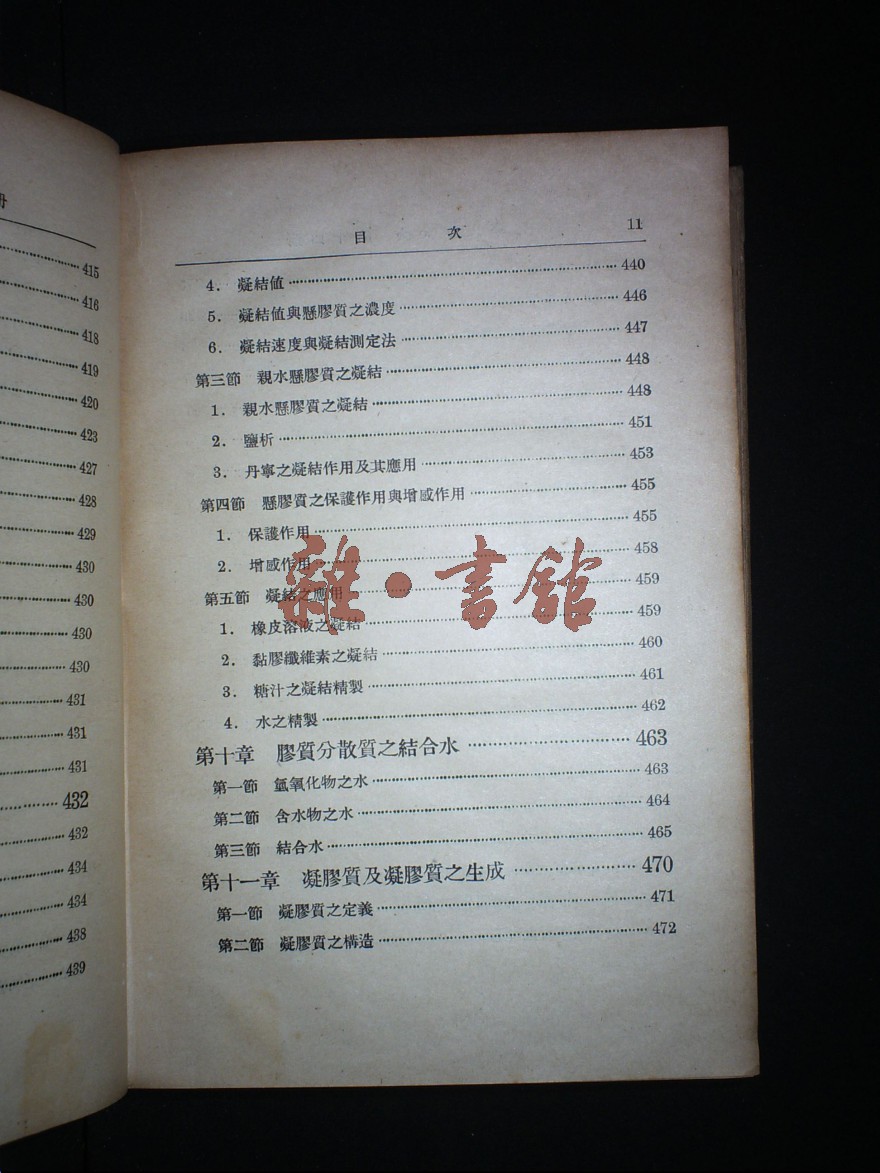 415
416
418
419
420
423
427
428
429
430
430
430
430
431
431
431
432
432
434
434
438
439
目次 11
4. 凝結値 440
5. 凝結値與懸膠質之濃度 446
6. 凝結速度與凝結測定法 447
第三節 親水懸膠質之凝結 448
1. 親水懸膠質之凝結 448
2. 鹽析 451
3. 丹寧之凝結作用及其應用 453
第四節 懸膠質之保護作用與增感作用 455
1. 保護作用 455
2. 增感作用 458
第五節 凝結之應用 459
1. 橡皮溶液之凝結 459
2. 黏膠纖維素之凝結 460
3. 糖汁之凝結精製 461
4. 水之精製 462
第十章 膠質分散質之結合水 463
第一節 氫氧化物之水 463
第二節 含水物之水 464
第三節 結合水 465
第十一章 凝膠質及凝膠質之生成 470
第一節 凝膠質之定義 471
第二節 凝膠質之構造 472
雜·書館